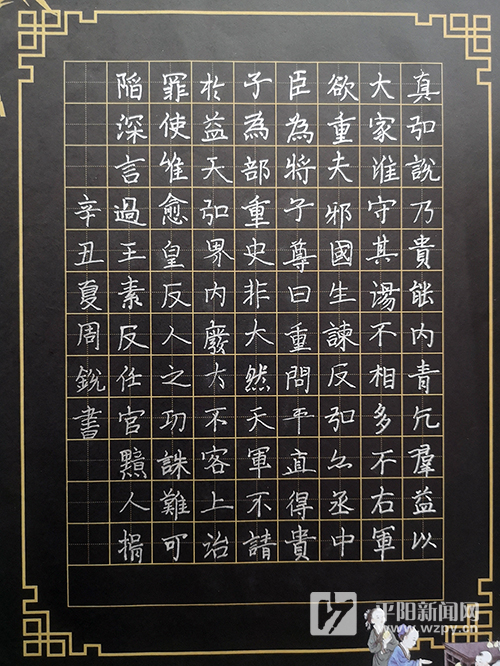 真弘說乃貴能內青凢羣益以
大家淮守其湯不相多不右軍
欲重夫邪國生諫反弘么丞中
臣為將子尊曰重問平直得貴
子為部重史非大然天軍不請
於益天弘界內廢大不客上治
罪使雖愈皇反人之功誅難可
陷深言過王素反任官黥人捐
辛丑夏周銳書
平阳新闻网
www.wzpy.cn